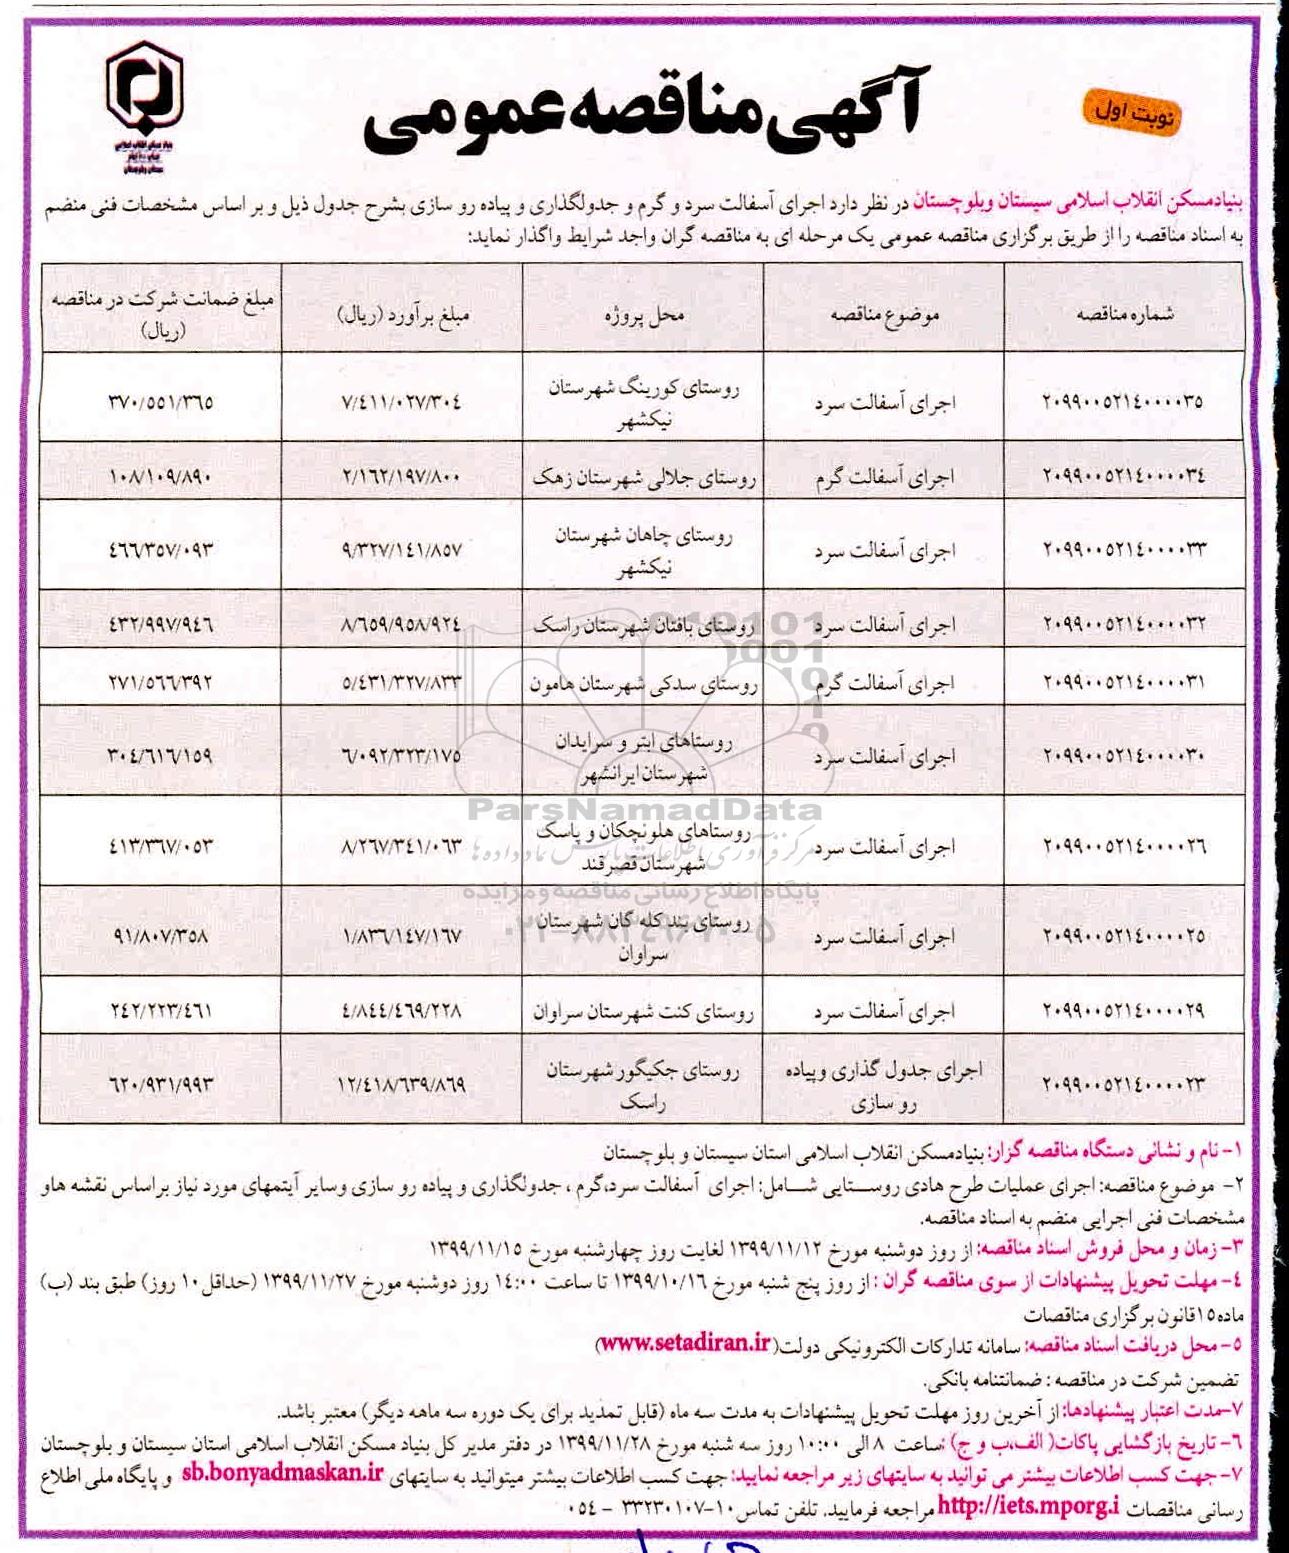 نوبت اول
آگهی مناقصه عمومی
بنیاد مسکن انقلاب اسلامی
بنیادمسکن انقلاب اسلامی سیستان وبلوچستان در نظر دارد اجرای آسفالت سرد و گرم و جدولگذاری و پیاده رو سازی بشرح جدول ذیل و بر اساس مشخصات فنی منضم
به اسناد مناقصه را از طریق برگزاری مناقصه عمومی یک مرحله ای به مناقصه گران واجد شرایط واگذار نماید:
شماره مناقصه موضوع مناقصه محل پروژه مبلغ برآورد (ریال) مبلغ ضمانت شرکت در مناقصه
(ریال)
۲۰۹۹۰۰۵۲۱۴۰۰۰۰۳۵ اجرای آسفالت سرد روستای کورینگ شهرستان
نیکشهر ۷/۴۱۱/۰۲۷/۳۰۴ ۳۷۰/۵۵۱/۳۶۵
۲۰۹۹۰۰۵۲۱۴۰۰۰۰۳۴ اجرای آسفالت گرم روستای جلالی شهرستان زهک ۲/۱۶۲/۱۹۷/۸۰۰ ۱۰۸/۱۰۹/۸۹۰
۲۰۹۹۰۰۵۲۱۴۰۰۰۰۳۳ اجرای آسفالت سرد روستای چاهان شهرستان
نیکشهر ۹/۳۲۷/۱۴۱/۸۵۷ ۴۶۶/۳۵۷/۰۹۳
۲۰۹۹۰۰۵۲۱۴۰۰۰۰۳۲ اجرای آسفالت سرد روستای بافتان شهرستان راسک ۸/۶۵۹/۹۵۸/۹۲۴ ۴۳۲/۹۹۷/۹۴۶
۲۰۹۹۰۰۵۲۱۴۰۰۰۰۳۱ اجرای آسفالت گرم روستای سدکی شهرستان هامون ۵/۴۳۱/۳۲۷/۸۳۳ ۲۷۱/۵۶۶/۳۹۲
۲۰۹۹۰۰۵۲۱۴۰۰۰۰۳۰ اجرای آسفالت سرد روستاهای ابتر و سرایدان
شهرستان ایرانشهر ۶/۰۹۲/۳۲۳/۱۷۵ ۳۰۴/۶۱۶/۱۵۹
۲۰۹۹۰۰۵۲۱۴۰۰۰۰۲۶ اجرای آسفالت سرد روستاهای هلونچکان و پاسک
شهرستان قصرقند ۸/۲۶۷/۳۴۱/۰۶۳ ۴۱۳/۳۶۷/۰۵۳
۲۰۹۹۰۰۵۲۱۴۰۰۰۰۲۵ اجرای آسفالت سرد روستای بند کله گان شهرستان
سراوان ۱/۸۳۶/۱۴۷/۱۶۷ ۹۱/۸۰۷/۳۵۸
۲۰۹۹۰۰۵۲۱۴۰۰۰۰۲۹ اجرای آسفالت سرد روستای کنت شهرستان سراوان ۴/۸۴۴/۴۶۹/۲۲۸ ۲۴۲/۲۲۳/۴۶۱
۲۰۹۹۰۰۵۲۱۴۰۰۰۰۲۳ اجرای جدول گذاری وپیاده
رو سازی روستای جکیگور شهرستان
راسک ۱۲/۴۱۸/۶۳۹/۸۶۹ ۶۲۰/۹۳۱/۹۹۳
ParsNamadData
مرکز فرآوری اطلاعات پارس نماد داده ها
پایگاه اطلاع رسانی مناقصه و مزایده
۱- نام و نشانی دستگاه مناقصه گزار: بنیادمسکن انقلاب اسلامی استان سیستان و بلوچستان
۲- موضوع مناقصه: اجرای عملیات طرح هادی روستایی شامل: اجرای آسفالت سرد،گرم ، جدولگذاری و پیاده رو سازی وسایر آیتمهای مورد نیاز براساس نقشه هاو
مشخصات فنی اجرایی منضم به اسناد مناقصه.
۳- زمان و محل فروش اسناد مناقصه: از روز دوشنبه مورخ ۱۳۹۹/۱۱/۱۲ لغایت روز چهارشنبه مورخ ۱۳۹۹/۱۱/۱۵
۴- مهلت تحویل پیشنهادات از سوی مناقصه گران : از روز پنج شنبه مورخ ۱۳۹۹/۱۰/۱۶ تا ساعت ۱۴:۰۰ روز دوشنبه مورخ ۱۳۹۹/۱۱/۲۷ (حداقل ۱۰ روز) طبق بند (ب)
ماده۱۵قانون برگزاری مناقصات
۵- محل دریافت اسناد مناقصه: سامانه تدارکات الکترونیکی دولت(www.setadiran.ir)
تضمین شرکت در مناقصه : ضمانتنامه بانکی.
۷-مدت اعتبار پیشنهادها: از آخرین روز مهلت تحویل پیشنهادات به مدت سه ماه (قابل تمدید برای یک دوره سه ماهه دیگر) معتبر باشد.
۶- تاریخ بازگشایی پاکات( الف،ب و ج) :ساعت ۸ الی ۱۰:۰۰ روز سه شنبه مورخ ۱۳۹۹/۱۱/۲۸ در دفتر مدیر کل بنیاد مسکن انقلاب اسلامی استان سیستان و بلوچستان
۷- جهت کسب اطلاعات بیشتر می توانید به سایتهای زیر مراجعه نمایید: جهت کسب اطلاعات بیشتر میتوانید به سایتهای sb.bonyadmaskan.ir و پایگاه ملی اطلاع
رسانی مناقصات http://iets.mporg.i مراجعه فرمایید. تلفن تماس ۱۰-۳۳۲۳۰۱۰۷ - ۰۵۴